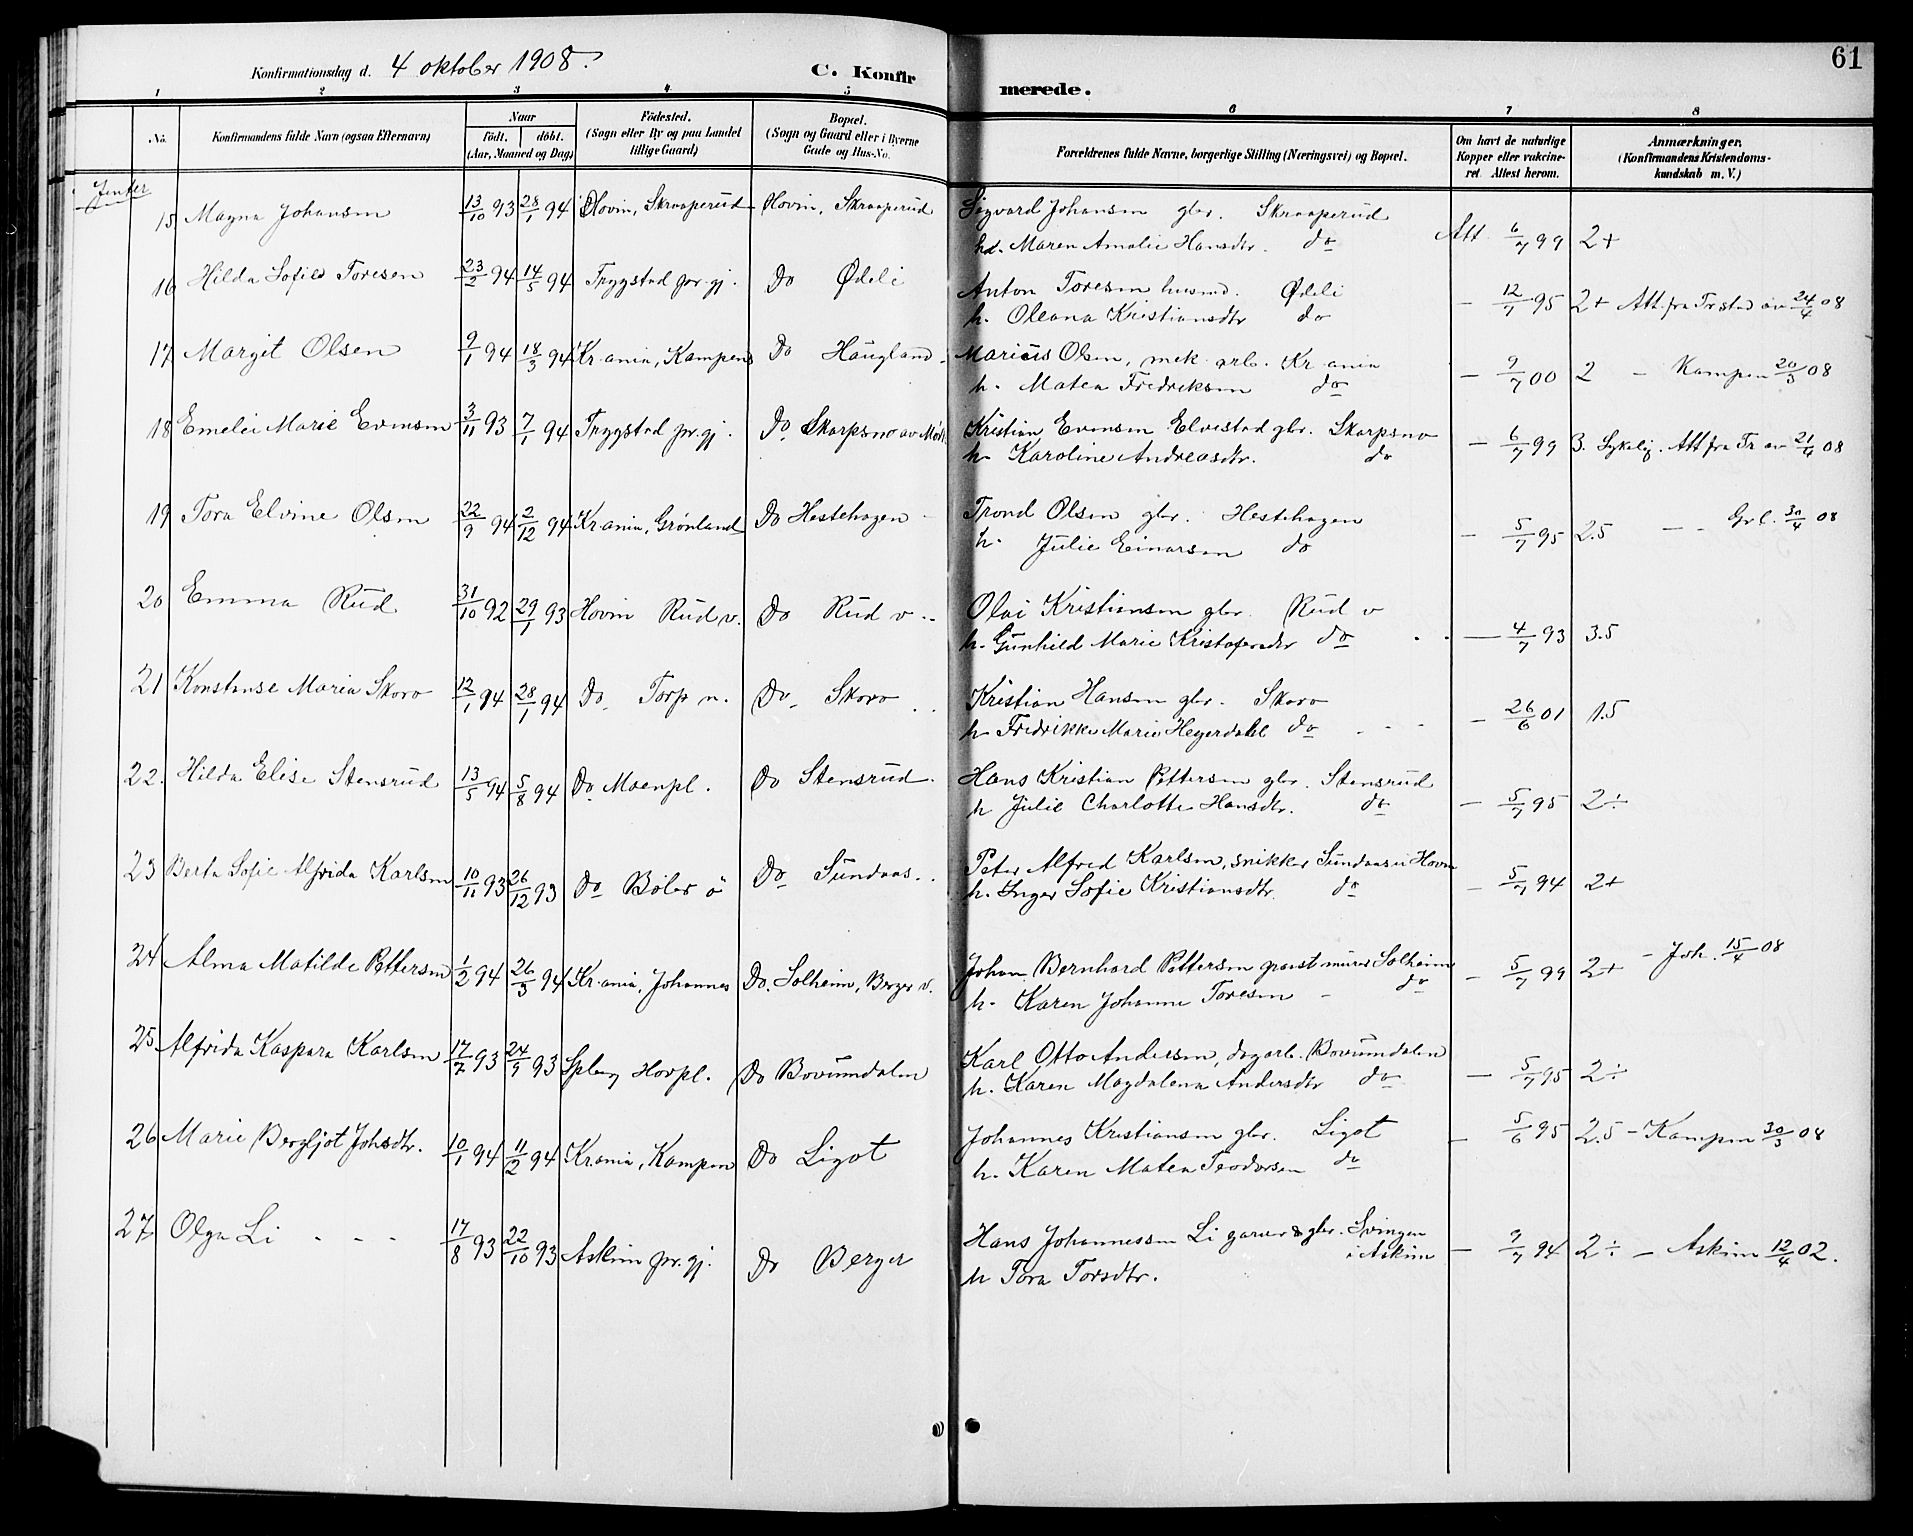 61
Konfirmationsdag d. 4 oktober 1908.
C. Konfirmerede.
1 2 3 4 5 6 7 8
No. Konfirmandens fulde Navn (ogsaa Efternavn) Naar födt. döbt. (Aar, Maaned og Dag) Födested. (Sogn eller By og paa Landet tillige Gaard) Bopæl. (Sogn og Gaard eller i Byerne Gade og Hus-No. Forældrenes fulde Navne, borgerlige Stilling (Næringsvei) og Bopæl. Om havt de naturlige Kopper eller vakcineret. Attest herom. Anmærkninger. (Konfirmandens Kristendomskundskab m. V.)
Jenter
15 Magna Johansen 13/10 93 28/1 94 Hovin, Skraaperud Hovin, Skraaperud Sigvard Johansen gbr. Skraaperud
h. Maren Amalie Hansdtr. do Att. 6/7 99 2+
16 Hilda Sofie Toresen 23/2 94 14/5 94 Trygstad pr.gj. Do Ødeli Anton Toresen husmd. Ødeli
h. Oleana Kristiansdtr do - 12/7 95 2+ Att. fra Trstad av 24/4 08
17 Margit Olsen 9/1 94 18/3 94 Kr.ania, Kampens Do Haugland Marius Olsen, mek. arb. Kr.ania
h. Matea Fredriksen do - 9/7 00 2 - Kampen 20/3 08
18 Emelie Marie Evensen 3/11 93 7/1 94 Trygstad pr.gj. Do Skarpsno av Kristian Evensen Elvestad gbr. Skarpsno
h. Karoline Andreasdtr. do - 6/7 99 3. Sykelig. Att fra Tr av 21/4 08
19 Tora Elvine Olsen 22/9 94 2/12 94 Kr.ania, Grønland Do Hestehagen Trond Olsen gbr. Hestehagen
h. Julie Einarsen do - 5/7 95 2.5 - - Grl. 30/4 08
20 Emma Rud 31/10 92 29/1 93 Hovin Rud v. Do Rud v. Olai Kristiansen gbr. Rud v
h. Gunhild Marie Kristofersdtr do - 4/7 93 3.5
21 Konstanse Maria Skoro 12/1 94 28/1 94 Do Torp n. Do Skoro Kristian Hansen gbr. Skoro
h Fredrikke Marie Heyerdahl do - 26/6 01 1.5
22. Hilda Elise Stensrud 13/5 94 5/8 94 Do Moenpl. Do Stensrud. Hans Kristian Pettersen gbr. Stensrud
h Julie Charlotte Hansdtr. do - 5/7 95 2÷
23 Berta Sofie Alfrida Karlsen 10/11 93 26/12 93 Do Bøler ö Do Sundaas. Peter Alfred Karlsen, snikker Sundaas i Hovin
h. Inger Sofie Kristiansdtr. do - 5/7 94 2+
24 Alma Matilde Pettersen 1/2 94 26/3 94 Kr.ania, Johannes Do. Solheim, Berger v. Johan Bernhard Pettersen murer Solheim
h. Karen Johanne Toresen - do - 5/7 99 2+ - Joh. 15/4 08
25 Alfrida Kaspara Karlsen 17/7 93 24/9 93 Spberg Hovpl. Do Bovumdalen Karl Otto Andersen, dagarb. Bovumdalen
h. Karen Magdalena Andersdtr do - 5/7 95 2÷
26 Marie Bergljot Johsdtr. 10/1 94 11/2 94 Krania, Kampen Do Ligot Johannes Kristiansen gbr. Ligot
h. Karen Matea Teodorsen do - 5/6 95 2.5 - Kampen 30/3 08
27 Olga Li - - - 17/8 93 22/10 93 Askim pr.gj. Do Berger Hans Johannessen Li garver & gbr. Svingen i Askim
h Tora Torsdtr. - 9/7 94 2÷ - Askim 12/4 02.